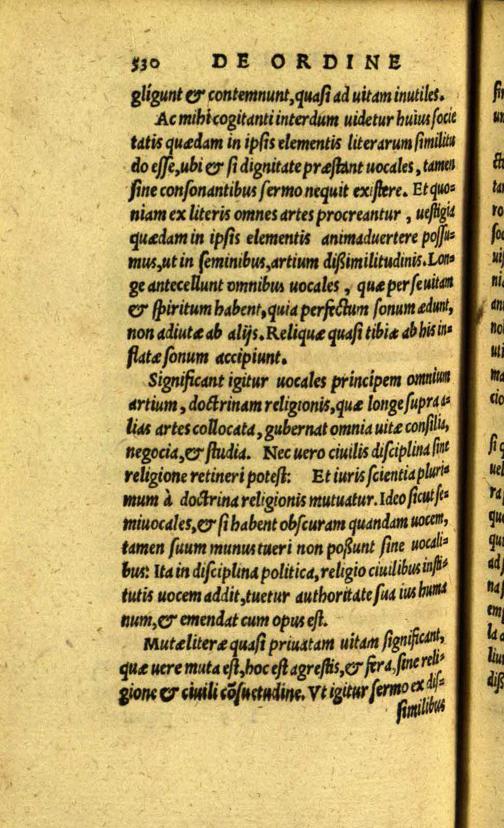 530 DE ORDINE
gligunt & contemnunt, quasi ad uitam inutiles.
Ac mihi cogitanti interdum uidetur huius socie
tatis quædam in ipsis elementis literarum similitu
do esse, ubi & si dignitate præstant uocales, tamen
sine consonantibus sermo nequit existere. Et quo=
niam ex literis omnes artes procreantur, uestigia
quædam in ipsis elementis animaduertere possu=
mus, ut in seminibus, artium dißimilitudinis. Lon=
ge antecellunt omnibus uocales, quæ per se uitam
& spiritum habent, quia perfectum sonum ædunt,
non adiutæ ab alijs. Reliquæ quasi tibiæ ab his in=
flatæ sonum accipiunt.
Significant igitur uocales principem omnium
artium, doctrinam religionis, quæ longe supra a=
lias artes collocata, gubernat omnia uitæ consilia,
negocia, & studia. Nec uero ciuilis disciplina sine
religione retineri potest: Et iuris scientia pluri=
mum à doctrina religionis mutuatur. Ideo sicut se=
miuocales, & si habent obscuram quandam uocem,
tamen suum munus tueri non poßunt sine uocali=
bus: Ita in disciplina politica, religio ciuilibus insti=
tutis uocem addit, tuetur authoritate sua ius huma
num, & emendat cum opus est.
Mutæ literæ quasi priuatam uitam significant,
quæ uere muta est, hoc est agrestis, & fera, sine reli=
gione & ciuili cõsuetudine. Vt igitur sermo ex dis=
similibus